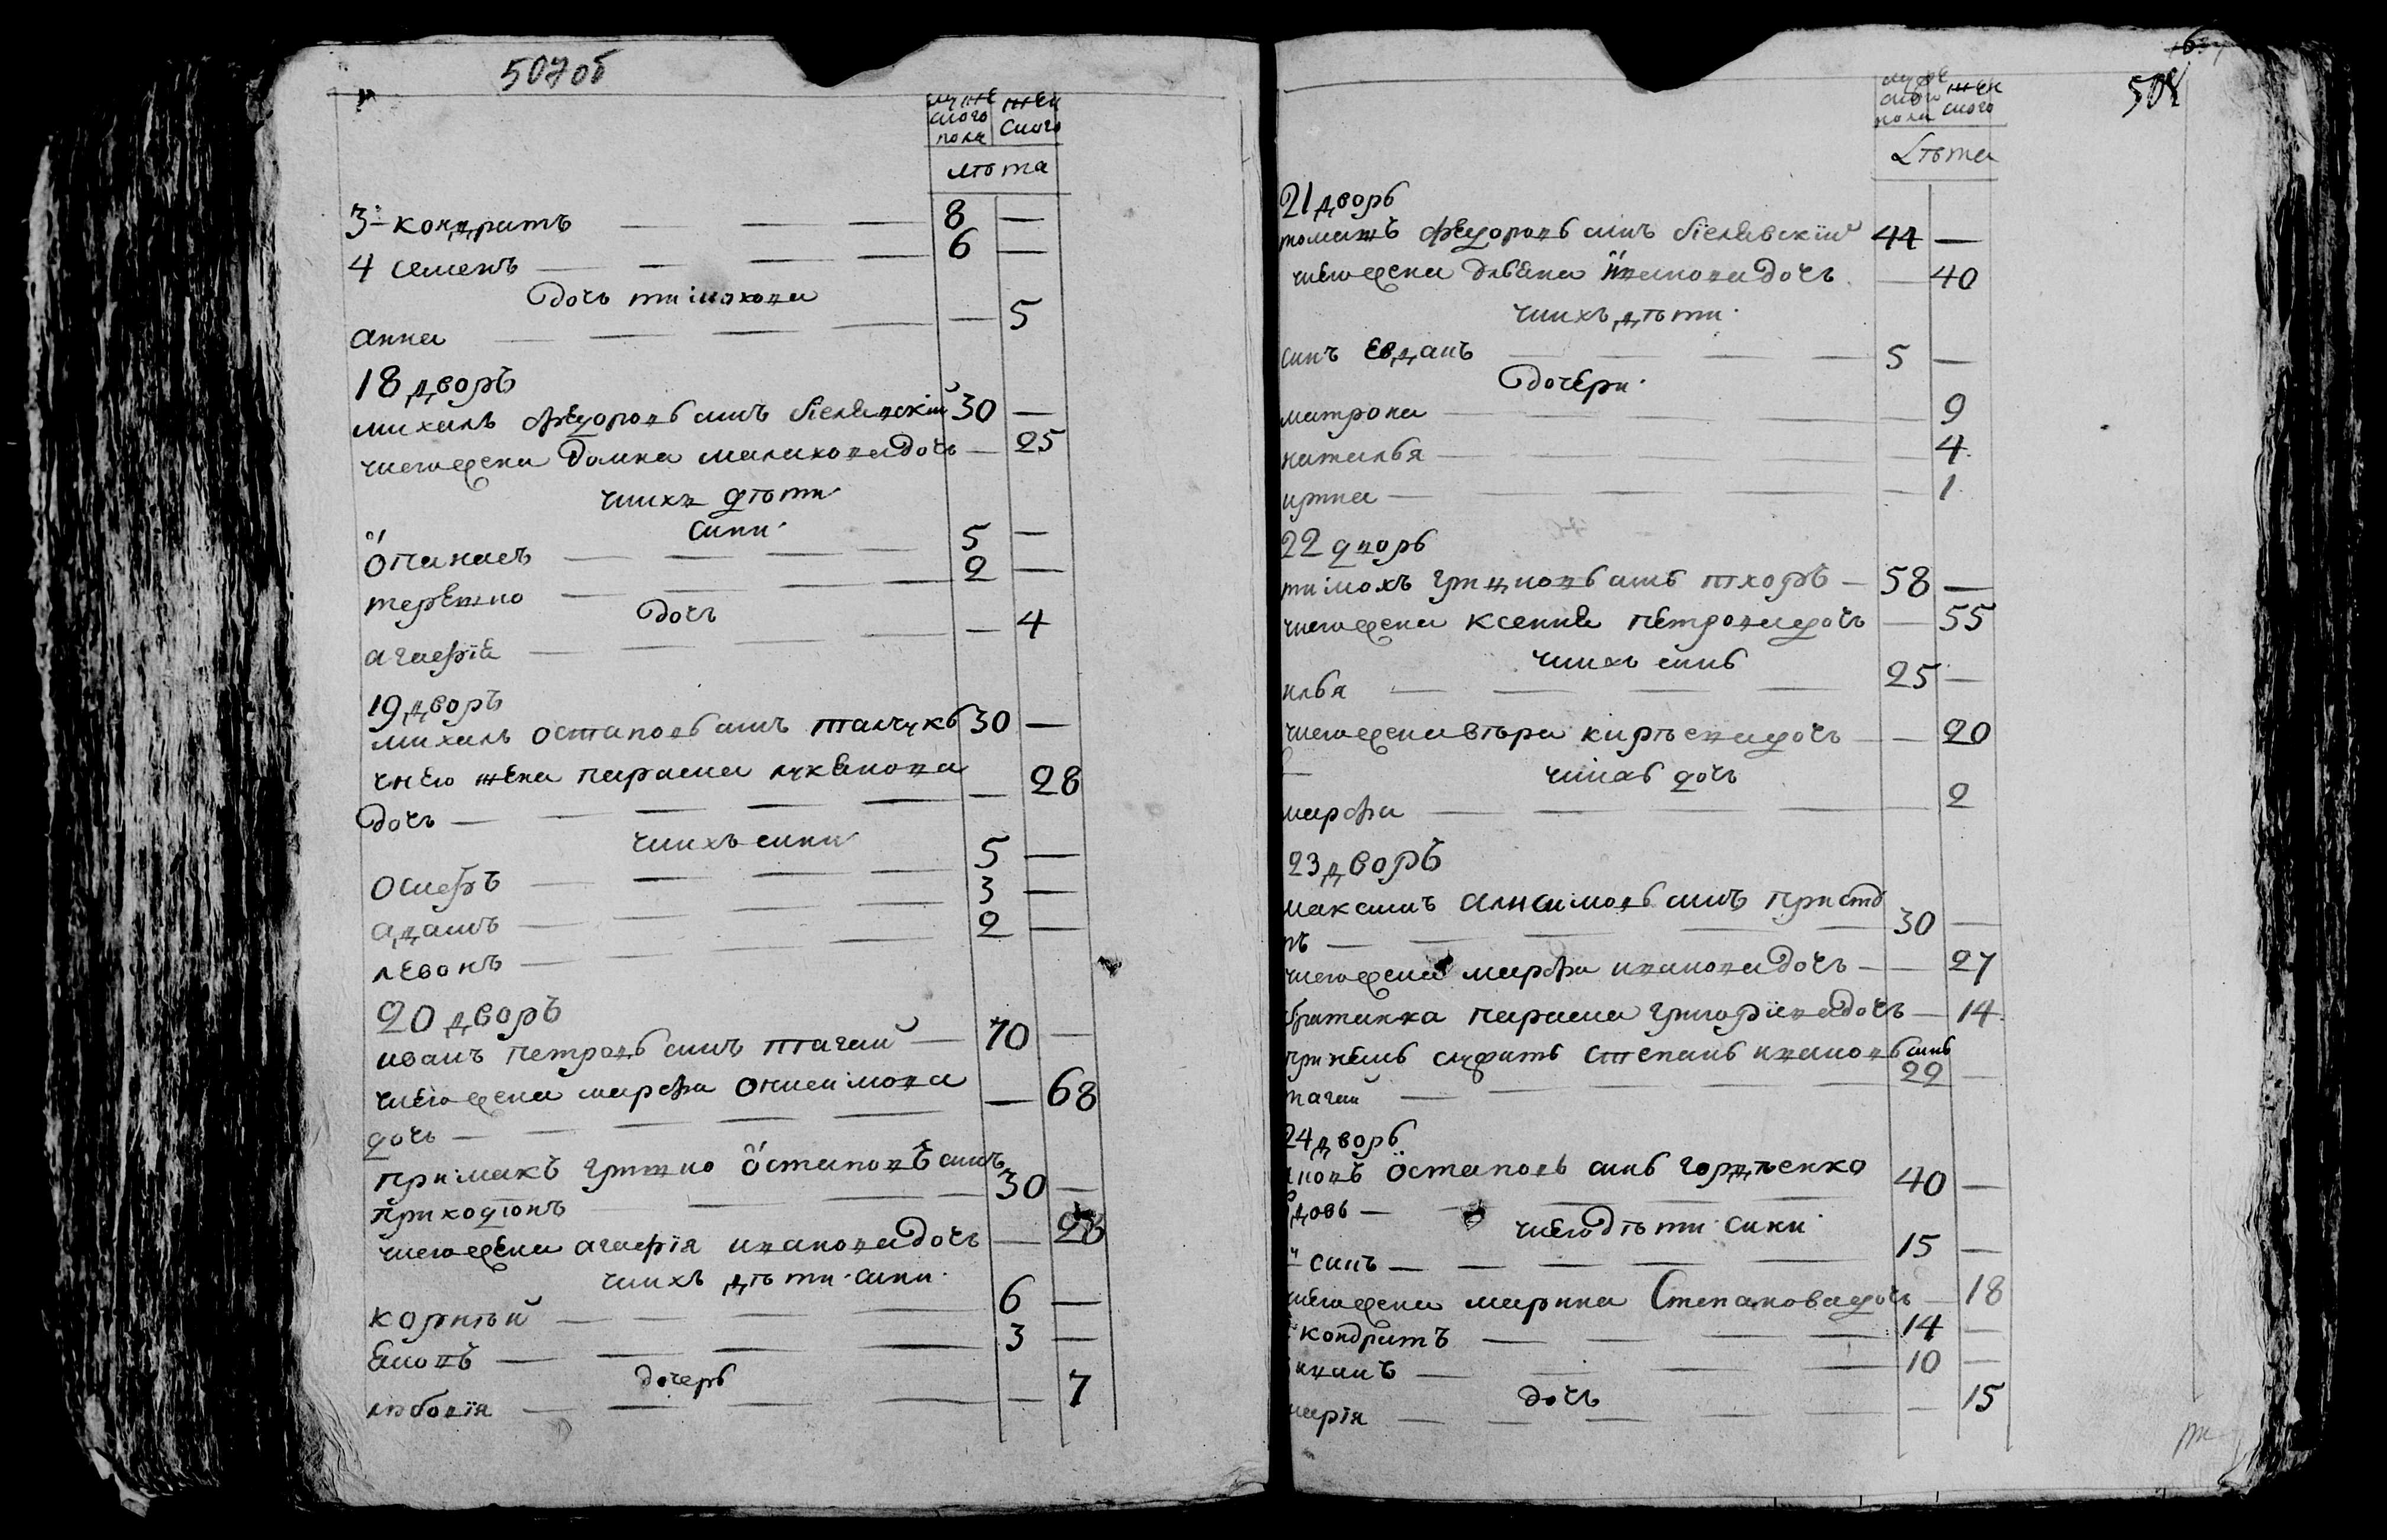 507об
муже
ского
пола
жен
ского
лѣта
3 кондратъ — — — 8 —
4 семенъ — — — — 6 —
дочь тимохова
анна — — — — — 5
18 дворъ
михаль федоровъ синъ белявскій 30 —
унего жена домна малахова дочь — 25
уних дѣти
сини
опанасъ — — — — 5 —
терешко — — — 2 —
дочь
агафія — — — — — 4
19 дворъ
михаль остаповъ синъ 30 —
унего жена параска лукянова
дочь — — — — — 28
унихъ сини
осифъ — — — — 5 —
адамъ — — — — 3 —
левонъ — — — — 2 —
20 дворъ
иванъ петровъ синъ птагай — 70 —
унего жена марфа онисимова
дочь — — — — — 68
примакъ гришко остаповъ синъ
приходюнъ — — — 30 —
унего жена агафія иванова дочь — 28
унихъ дѣти сини
корнѣй — — — — 6 —
яковъ — — — — 3 —
дочерь
любовія — — — — — 7
508
муже
ского
пола
жен
ского
Лѣта
21 дворъ
томашъ федоровъ синъ белявскій 44 —
унего жена ивянова дочь — 40
унихъ дѣти
синъ евдамъ — — — — 5 —
дочери
матрона — — — 9
наталья — — — 4
ирина — — — 1
22 дворъ
тимохъ грицковъ синъ тхоръ — 58 —
унего жена ксения петрова дочь — 55
унихъ синъ
илья — — — — 25 —
унего жена вѣра кирѣева дочь — — 20
дочь
марфа — — — — 2
23 дворъ
максимъ анисимовъ синъ присту
пъ — — — — 30 —
унего жена марфа иванова дочь — — 27
братанка параска григоріева дочь — 14
принемъ служитъ степанъ ивановъ синъ
тагай — — — — 22 —
24 дворъ
яковъ остаповъ синъ гордѣенко
вдовъ — — — — 40 —
унего дѣти сини
синъ — — — — — 15 —
унего жена марина Степанова дочь — 18
кондратъ — — — — 14 —
иванъ — — — — 10 —
дочь
марія — — — — — — 15